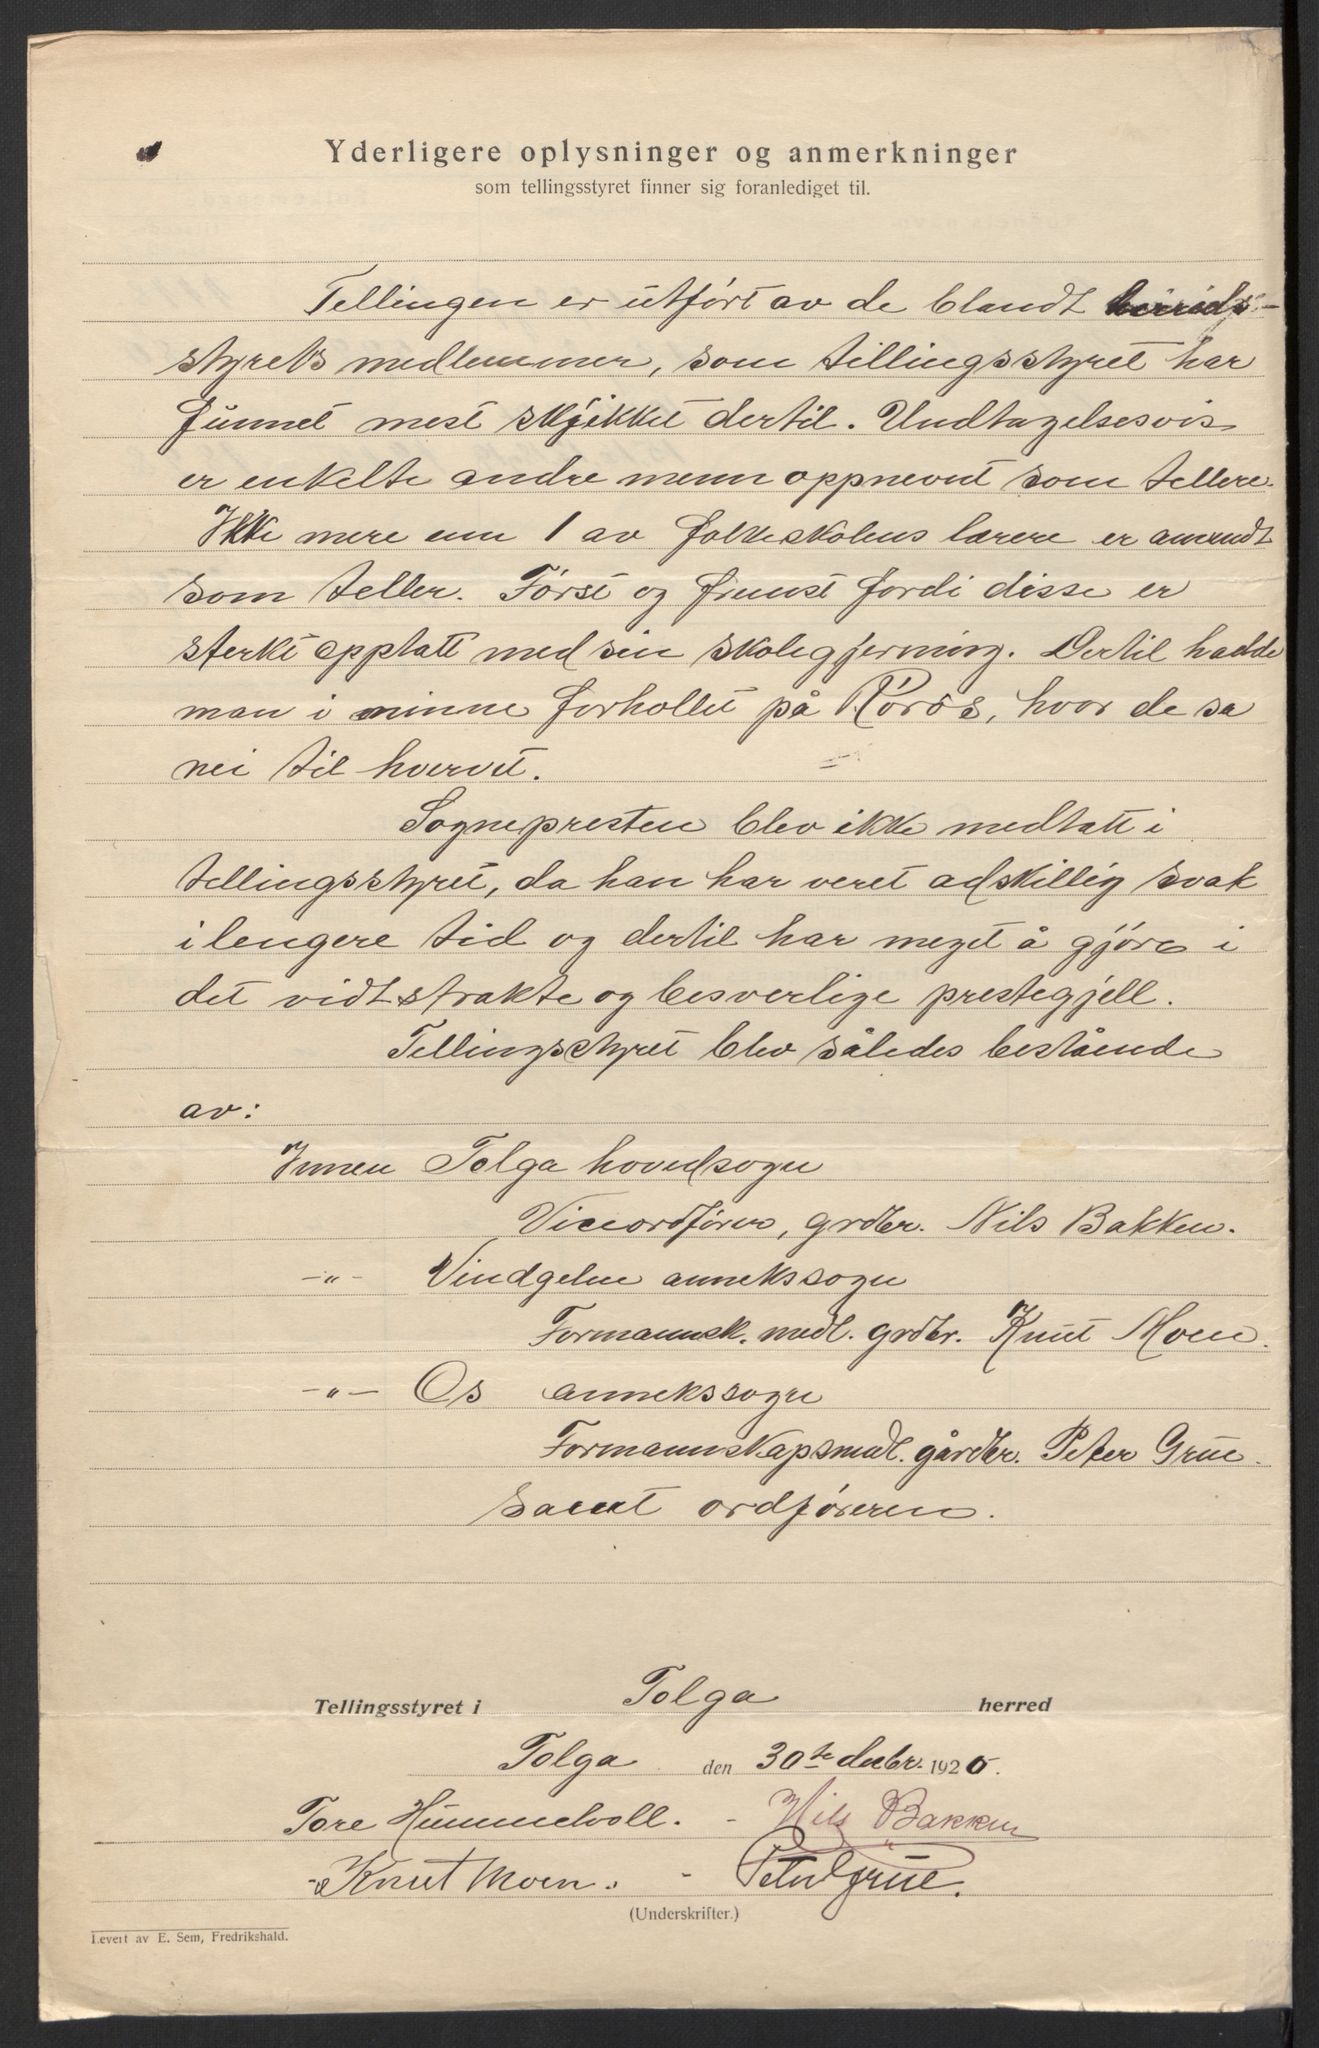 Yderligere oplysninger og anmerkninger
som tellingsstyret finner sig foranlediget til.
Tellingen er utført av de blandt herreds-
styrets medlemmer, som tellingsstyret har
funnet mest skjikket dertil. Undtagelsesvis
er enkelte andre menn oppnevnt som tellere.
Ikke mere enn 1 av folkeskolens lærere er anvendt
som teller. Først og fremst fordi disse er
sterkt opptatt med sin skolegjerning. Dertil hadde
man i minne forholdet på Røros, hvor de sa
nei til hvervet.
Sognepresten blev ikke medtatt i
tellingsstyret, da han har veret adskillig svak
i lengere tid og dertil har meget å gjøre i
det vidtstrakte og besverlige prestegjell.
Tellingsstyret blev således bestående
av:
Innen Tolga hovedsogn
Viceordfører, grdbr. Nils Bakken.
-"- Vindgelne annekssogn
Formannsk. medl. grdbr. Knut Moen.
-"- Os annekssogn
Formannskapsmedl. gårdbr. Peter Grue.
samt ordføreren.
Tellingsstyret i Tolga herred
Tolga den 30te decbr. 1920.
Tore Hummelvoll. - Nils Bakken
- Knut Moen. - Peter Grue.
(Underskrifter.)
Levert av E. Sem, Fredrikshald.